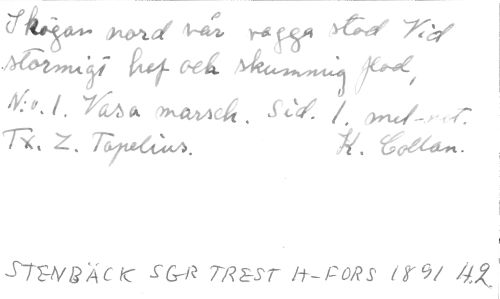 I högan nord vår vagga stod Vid
stormigt hef och skummig flod,
N:o. 1. Vasa marsch. Sid. 1.
Tx. Z. Topelius. K. Collan.
STENBÄCK SGR TREST H-FORS 1891 H.2